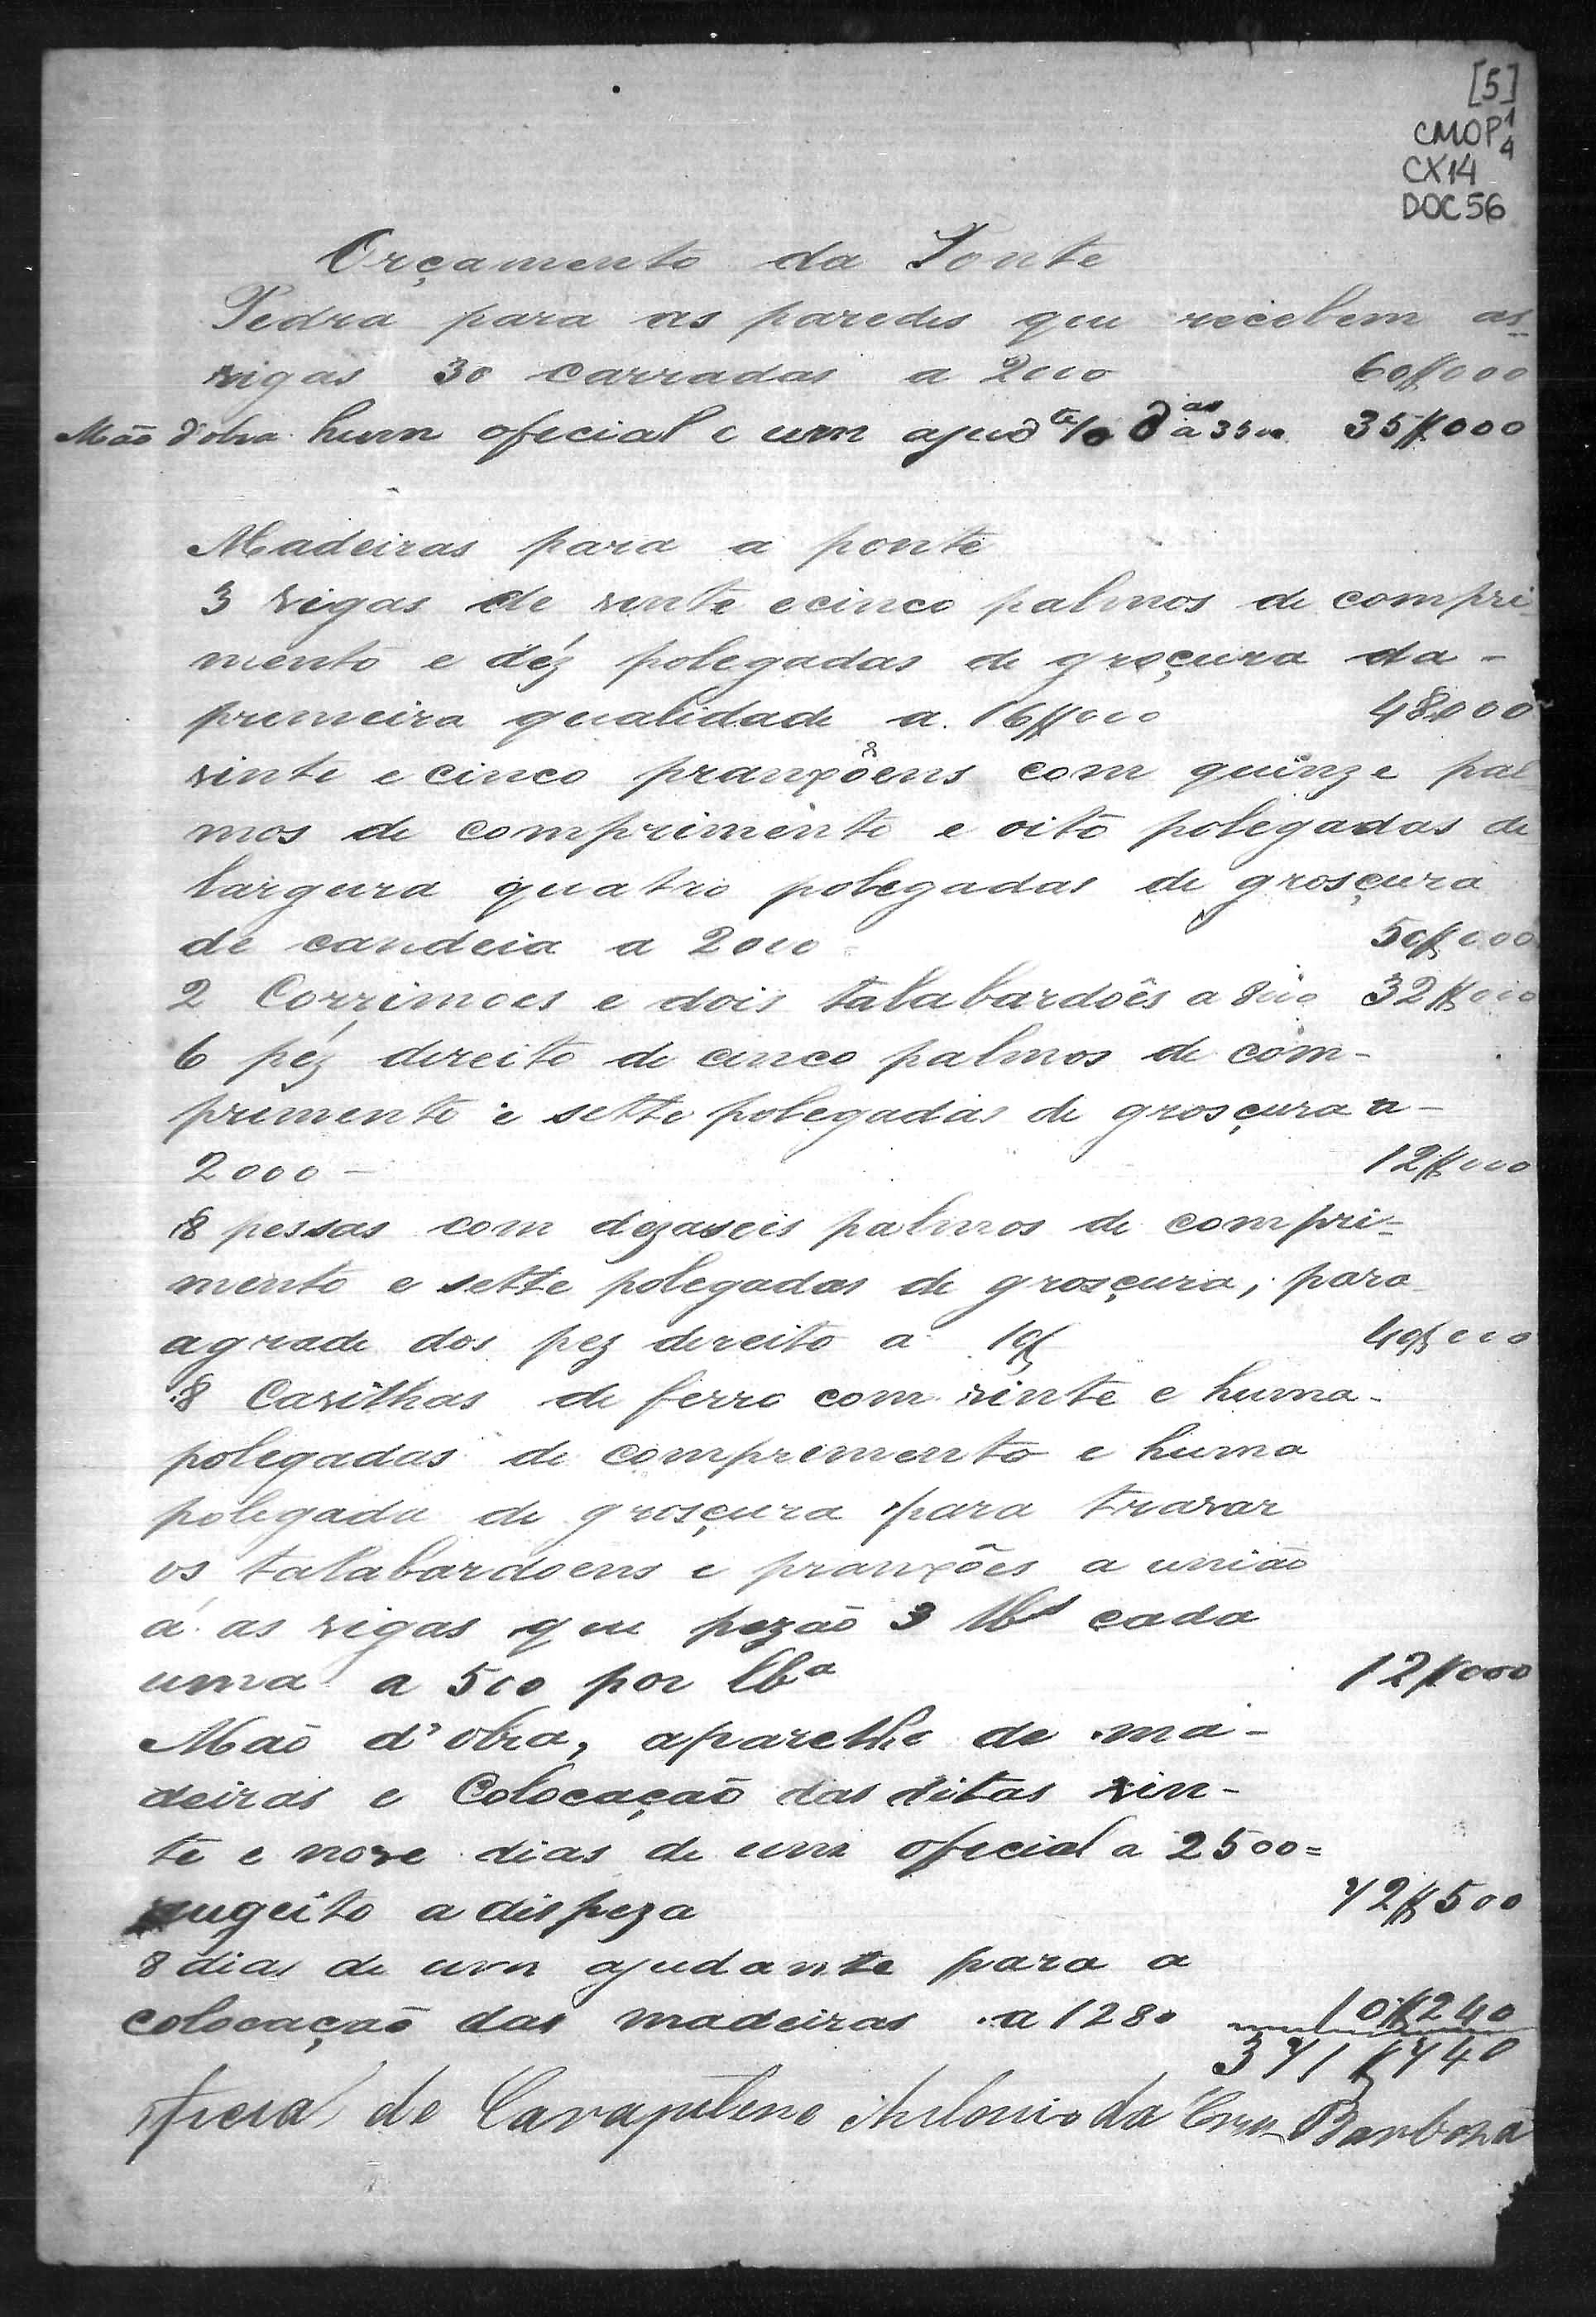 [5]
CMOP 1/4
CX14
DOC 56
Orçamento da Ponte
Pedra para as paredes que recebem as
vigas 30 carradas a 2000 60$000
Mão d'obra hum ofecial e um ajudte 10 dias a 3500 35$000
Madeiras para a ponte
3 vigas de vinte e cinco palmos de compri
mento e déz polegadas de groçura da -
primeira qualidade a 16$000 48000
vinte e cinco pranxôens com quinze pal
mos de comprimento e oito polegadas de
largura quatro polegadas de grosçura
de candeia a 2000 50$000
2 Corrimoes e dois talabardoês a 8000 32$000
6 péz direito de cinco palmos de com-
primento e sette polegadas de grosçura a -
2000 - 12$000
8 pessas com dezaseis palmos de compri-
mento e sette polegadas de grosçura, para
agrade dos pez direito a 40$000
8 Cavilhas de ferro com vinte e huma -
polegadas de comprimento e huma
polegada de grosçura para travar
os talabardoens e pranxões a união
á as vigas que pezão 3 lbs cada
uma a 500 por lba 12$000
Mão d'obra, aparelho de ma-
deiras e Colocação das ditas vin-
te e nove dias de um ofecial a 2500 =
sugeito a dispeza 72$500
8 dias de um ajudante para a
colocação das madeiras a 1280 10$240
371$740
Oficial de Carapiteno Antonio da Cruz Barboza